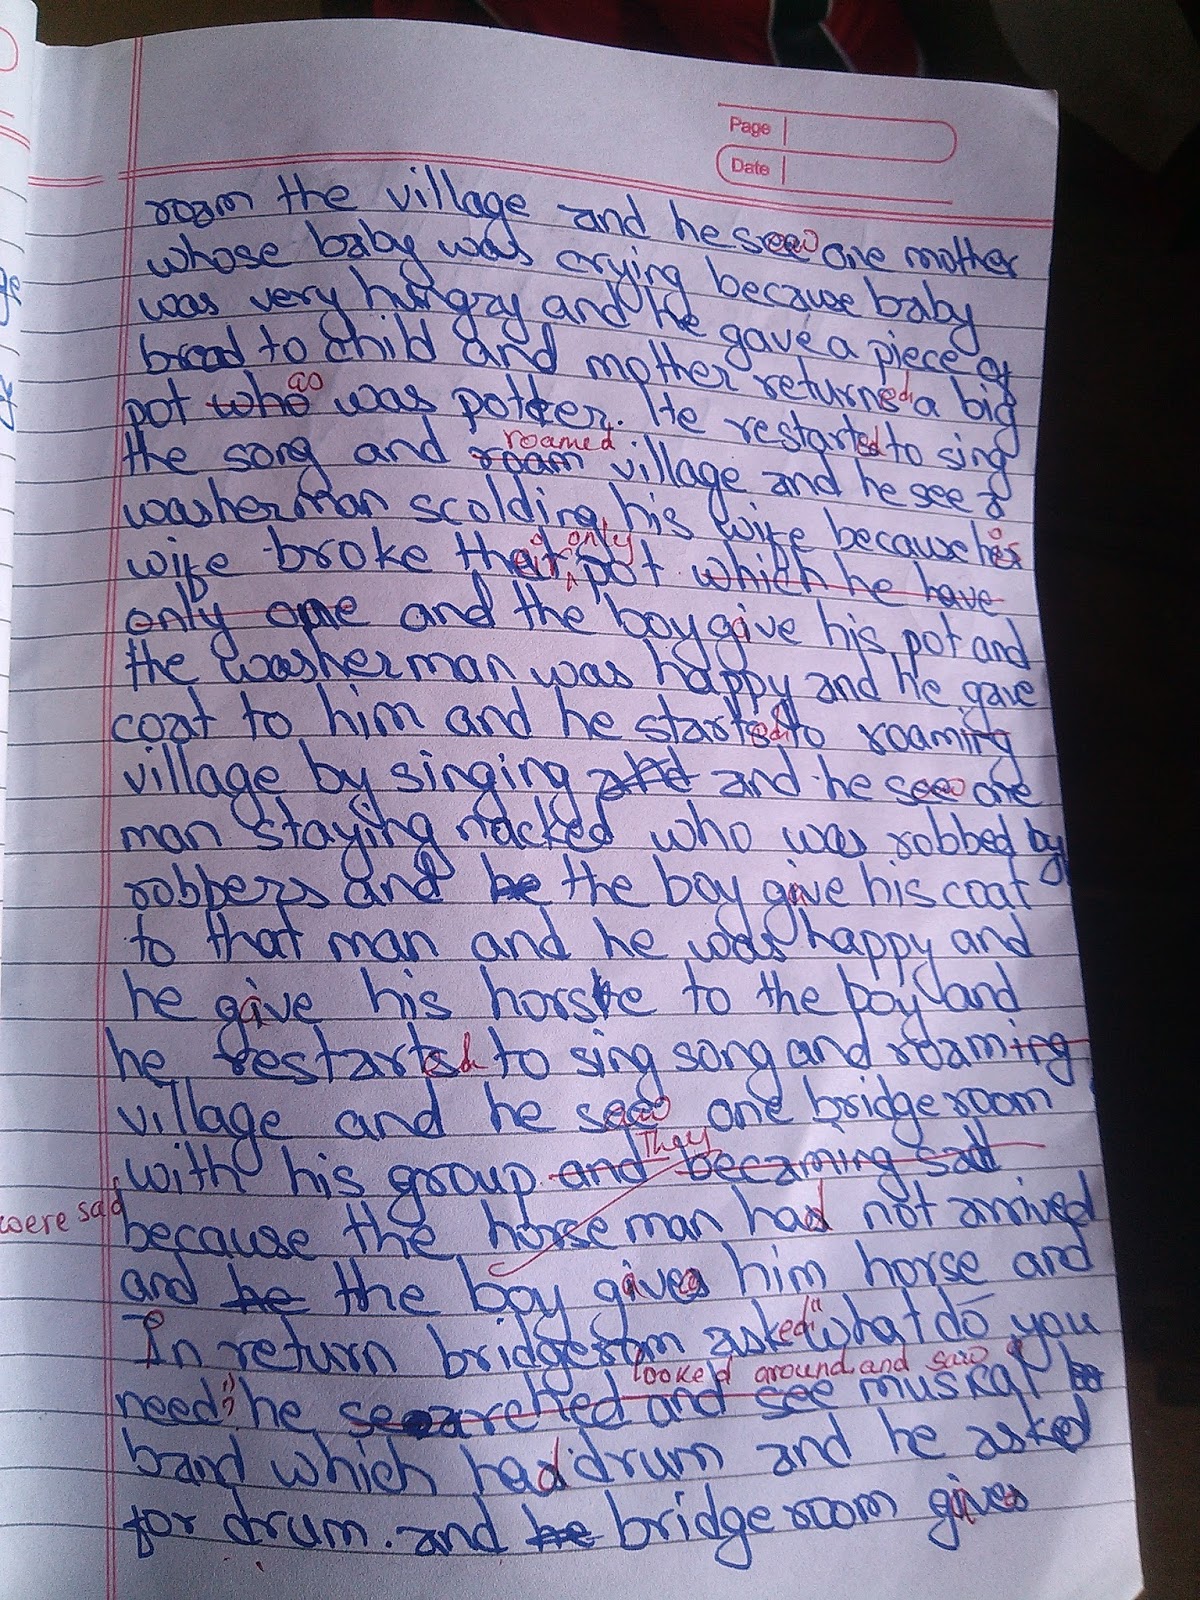 Page
Date
roam the village and he saw one mother
whose baby was crying because baby
was very hungry and he gave a piece of
bread to child and mother returned a big
pot who as was potter. He restarted to sing
the song and roam roamed village and he see a
washerman scolding his wife because his
wife broke their only pot which he have
only one and the boy gave his pot and
the washerman was happy and he gave
coat to him and he started to roaming
village by singing and and he saw one
man staying nacked who was robbed by
robbers and he the boy gave his coat
to that man and he was happy and
he gave his horse to the boy and
he restarted to sing song and roaming
village and he saw one bridgeroom
with his group and They becaming sad
were sad
because the horse man had not arrived
and he the boy gave him horse and
In return bridgeroom asked "what do you
need" he searched and see looked around and saw a musical
band which had drum and he asked
for drum. and he bridgeroom gives